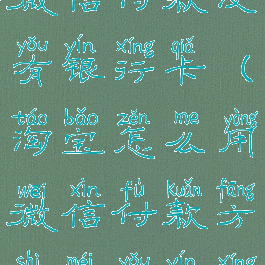 微信付款没
yǒu yín xíng qiǎ
有银行卡（
táo bǎo zěn me yòng
淘宝怎么用
wēi xìn fù kuǎn fāng
微信付款方
shì méi yǒu yín xíng